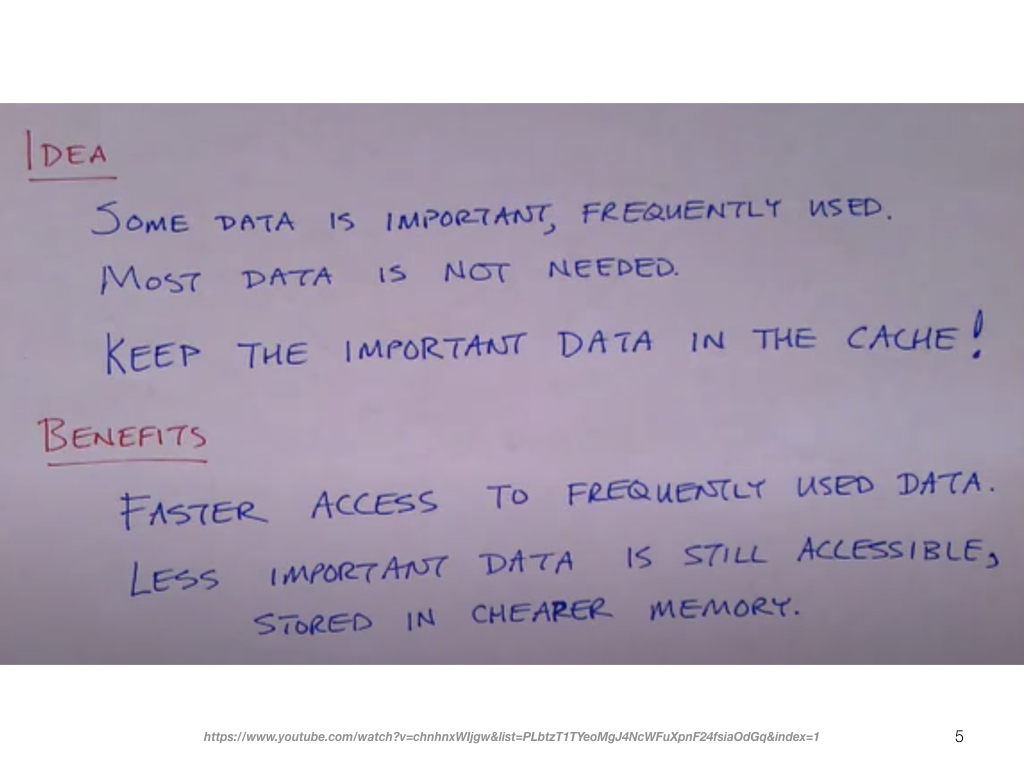 IDEA
SOME DATA IS IMPORTANT, FREQUENTLY USED.
MOST DATA IS NOT NEEDED.
KEEP THE IMPORTANT DATA IN THE CACHE!
BENEFITS
FASTER ACCESS TO FREQUENTLY USED DATA.
LESS IMPORTANT DATA IS STILL ACCESSIBLE,
STORED IN CHEAPER MEMORY.
https://www.youtube.com/watch?v=chnhnxWIjgw&list=PLbtzT1TYeoMgJ4NcWFuXpnF24fsiaOdGq&index=1
5